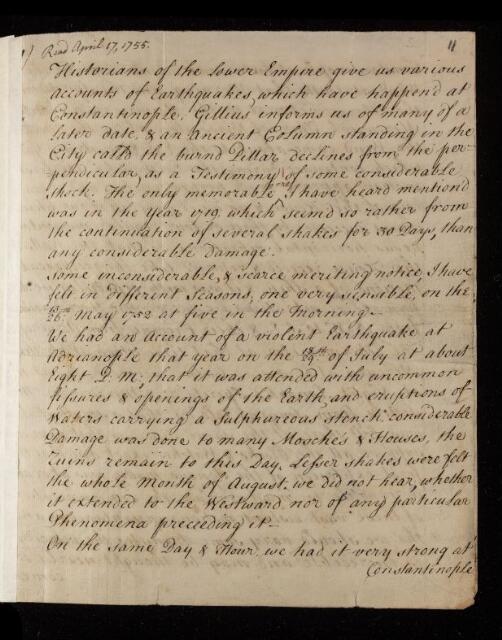 Read April 17, 1755.
11
Historians of the Lower Empire give us various
accounts of Earthquakes, which have happend at
Constantinople. Gillius informs us of many of a
later date, & an ancient Column standing in the
City calld the burnd Pillar declines from the per-
pendicular, as a Testimony of some considerable
shock. The only memorable I have heard mentiond
was in the year 1719, which seemd so rather from
the continuation of several shakes for 30 Days, than
any considerable Damage.
Some inconsiderable, & scarce meriting notice, I have
felt in different Seasons, one very sensible, on the
May 1752 at five in the Morning.
We had an Account of a violent Earthquake at
Adrianople that year on the 18th/29 of July at about
Eight P. M.; that it was attended with uncommon
fissures & openings of the Earth, and eruptions of
Waters carrying a Sulphureous stench. Considerable
Damage was done to many Mosches & Houses, the
Ruins remain to this Day. Lesser shakes were felt
the whole Month of August. we did not hear, whether
it extended to the Westward, nor of any particular
Phenomena preceeding it—
On the same Day & Hour, we had it very strong at
Constantinople